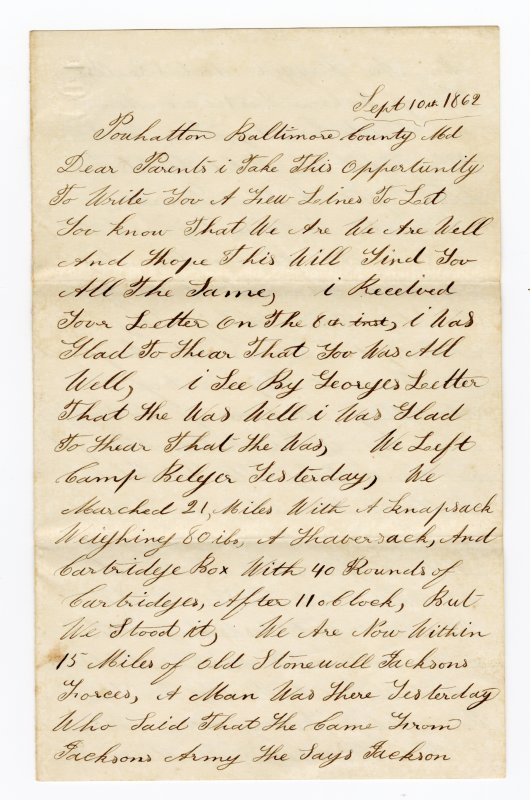 Sept 10th 1862
Pouhatton Baltimore County Md
Dear Parents i Take This Opportunity
To Write You A Few Lines To Let
You know That We Are We Are Well
And Hope This Will Find You
All The Same, i Received
Your Letter On The 8th inst, i Was
Glad To Hear That You Was All
Well, i See By Georges Letter
That He Was Well i Was Glad
To Hear That He Was, We Left
Camp Belger Yesterday, We
Marched 21, Miles With A Knapsack
Weighing 80 lbs, A Haversack, And
Cartridge Box With 40 Rounds of
Cartridges, After 11 oClock, But
We Stood it, We Are Now Within
15 Miles of Old Stonewall Jacksons
Forces, A Man Was Here Yesterday
Who Said That He Came From
Jacksons Army He Says Jackson